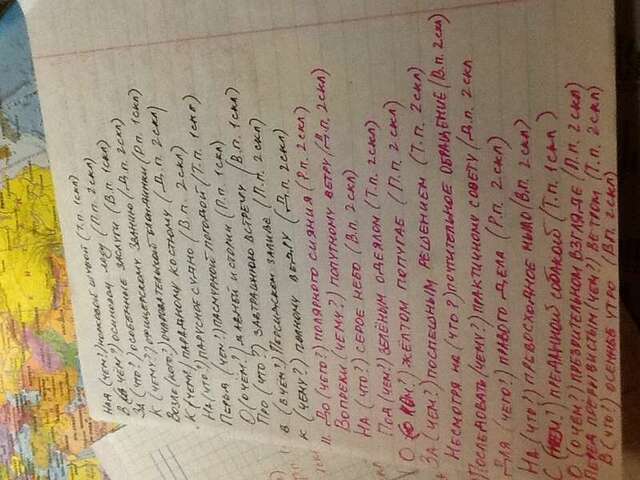 НАД (ЧЕМ?) НОРКОВОЙ ШУБОЙ (Т.П. 1СКЛ)
В (В ЧЁМ?) ОСИНОВОМ ЛЕСУ (П.П. 2СКЛ)
ЗА (ЧТО?) ОСОБЕННЫЕ ЗАСЛУГИ (В.П. 1СКЛ)
К (ЧЕМУ?) ОФИЦЕРСКОМУ ЗВАНИЮ (Д.П. 2СКЛ)
ВОЗЛЕ (КОГО?) ОЧАРОВАТЕЛЬНОЙ БЛОНДИНКИ (Р.П. 1СКЛ)
К (ЧЕМУ?) ПАРАДНОМУ КОСТЮМУ (Д.П. 2СКЛ)
НА (ЧТО?) ПАРУСНОЕ СУДНО (В.П. 2СКЛ)
ПЕРЕД (ЧЕМ?) ПАСМУРНОЙ ПОГОДОЙ (Т.П. 1СКЛ)
О (О ЧЕМ?) ДАВНЕЙ ИСТОРИИ (П.П. 1СКЛ)
ПРО (ЧТО?) ЗАВТРАШНЮЮ ВСТРЕЧУ (В.П. 1СКЛ)
В (В ЧЕМ?) ПЕРСИДСКОМ ЗАЛИВЕ (П.П. 2СКЛ)
К (ЧЕМУ?) ПОЛНОМУ ВЕДРУ (Д.П. 2СКЛ)
II. ДО (ЧЕГО?) ПОЛЯРНОГО СИЯНИЯ (Р.П. 2СКЛ)
ВОПРЕКИ (ЧЕМУ?) ПОПУТНОМУ ВЕТРУ (Д.П. 2СКЛ)
НА (ЧТО?) СЕРОЕ НЕБО (В.П. 2СКЛ)
ПОД (ЧЕМ?) ЗЕЛЁНЫМ ОДЕЯЛОМ (Т.П. 2СКЛ)
О (О КОМ?) ЖЁЛТОМ ПОПУГАЕ (П.П. 2СКЛ)
ЗА (ЧЕМ?) ПОСПЕШНЫМ РЕШЕНИЕМ (Т.П. 2СКЛ)
НЕСМОТРЯ НА (ЧТО?) ПОЧТИТЕЛЬНОЕ ОБРАЩЕНИЕ (В.П. 2СКЛ)
ПОСЛЕДОВАТЬ (ЧЕМУ?) ПРАКТИЧНОМУ СОВЕТУ (Д.П. 2СКЛ
ДЛЯ (ЧЕГО?) ПРАВОГО ДЕЛА (Р.П. 2СКЛ)
НА (ЧТО?) ПРЕВОСХОДНОЕ МЫЛО (В.П. 2СКЛ)
С (КЕМ?) ПРЕДАННОЙ СОБАКОЙ (Т.П. 1СКЛ)
О (О ЧЕМ?) ПРЕЗРИТЕЛЬНОМ ВЗГЛЯДЕ (П.П. 2СКЛ)
ПЕРЕД ПРЕРЫВИСТЫМ (ЧЕМ?) ВЕТРОМ (Т.П. 2СКЛ)
В (ЧТО?) ОСЕННЕЕ УТРО (В.П. 2СКЛ)